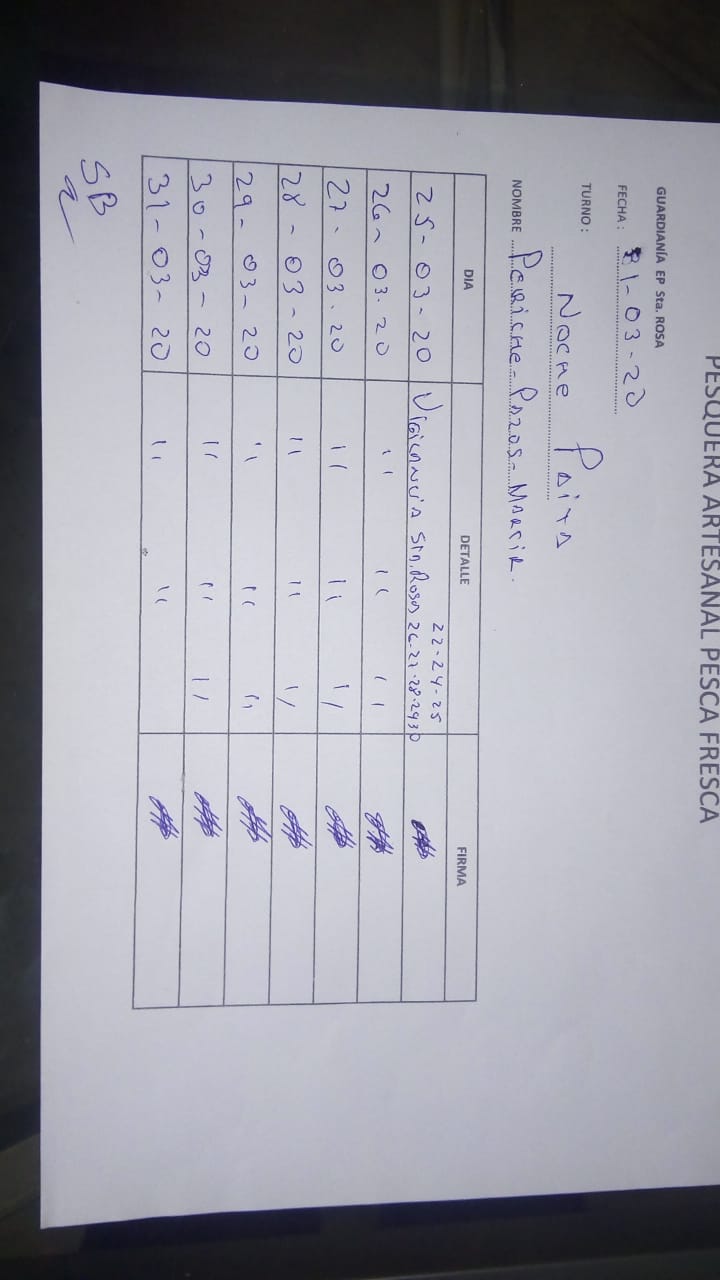 PESQUERA ARTESANAL PESCA FRESCA
GUARDIANÍA EP Sta. ROSA
FECHA: 31-03-20
TURNO: Noche Paita
NOMBRE Periche-Pazos-Martir.
DIA DETALLE FIRMA
22-24-25
25-03-20 Vigilancia Sta. Rosas 26.27.28.2930
26-03.20 " " "
27-03.20 " " "
28-03-20 " " "
29-03-20 " " "
30-03-20 " " "
31-03-20 " "
SB